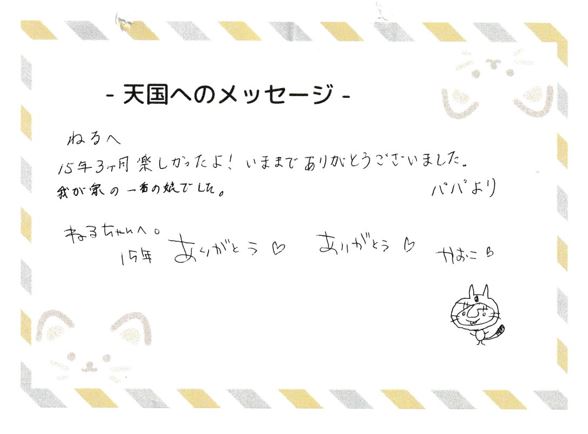 - 天国へのメッセージ -
ねるへ
15年3ヶ月 楽しかったよ！ いままで ありがとうございました。
我が家の一番の娘でした。
パパより
ねるちゃんへ。
15年 ありがとう♡ ありがとう♡ かおこ